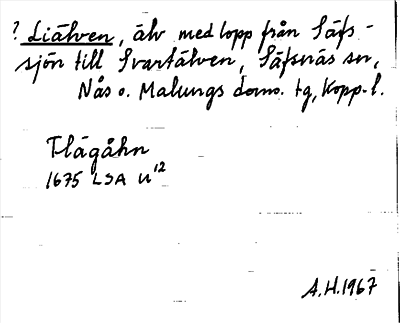 ? Liälven, älv med lopp från Säfs-
sjön till Svartälven, Säfsnäs sn,
Nås o. Malungs doms. tg, Kopp. l.
Flägåhn
1675 LSA U12
A.H. 1967